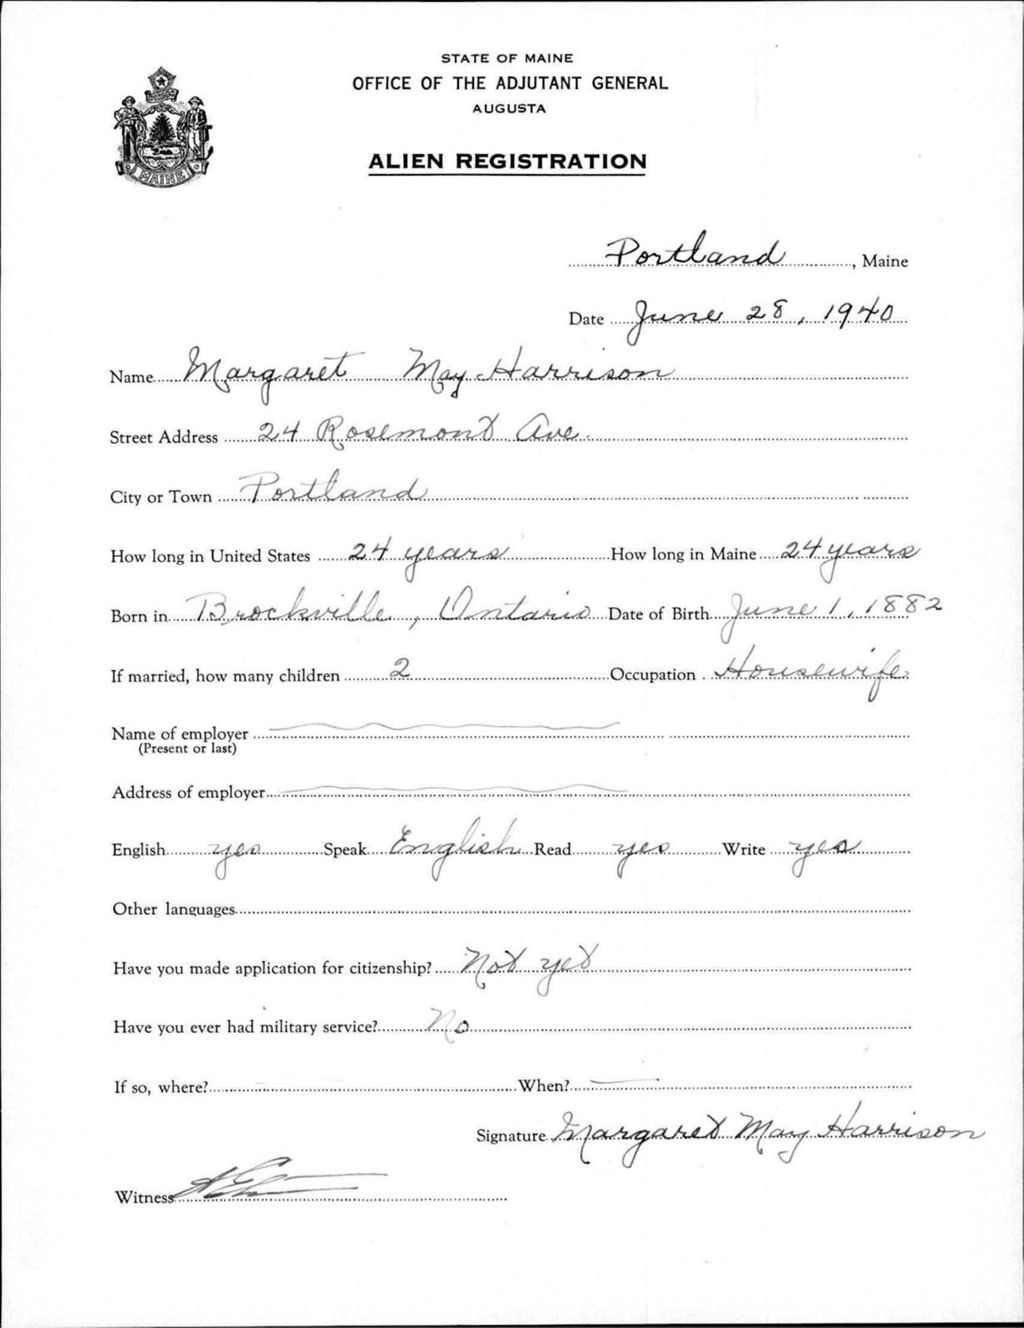 STATE OF MAINE
OFFICE OF THE ADJUTANT GENERAL
AUGUSTA
ALIEN REGISTRATION
MAINE
Portland, Maine
Date June 28, 1940
Name Margaret May Harrison
Street Address 24 Rosemont Ave.
City or Town Portland
How long in United States 24 years How long in Maine 24 years
Born in Brockville, Ontario Date of Birth June 1, 1882
If married, how many children 2 Occupation Housewife
Name of employer
(Present or last)
Address of employer
English yes Speak English Read yes Write yes
Other languages
Have you made application for citizenship? Not yet
Have you ever had military service? No
If so, where? When?
Signature Margaret May Harrison
Witness